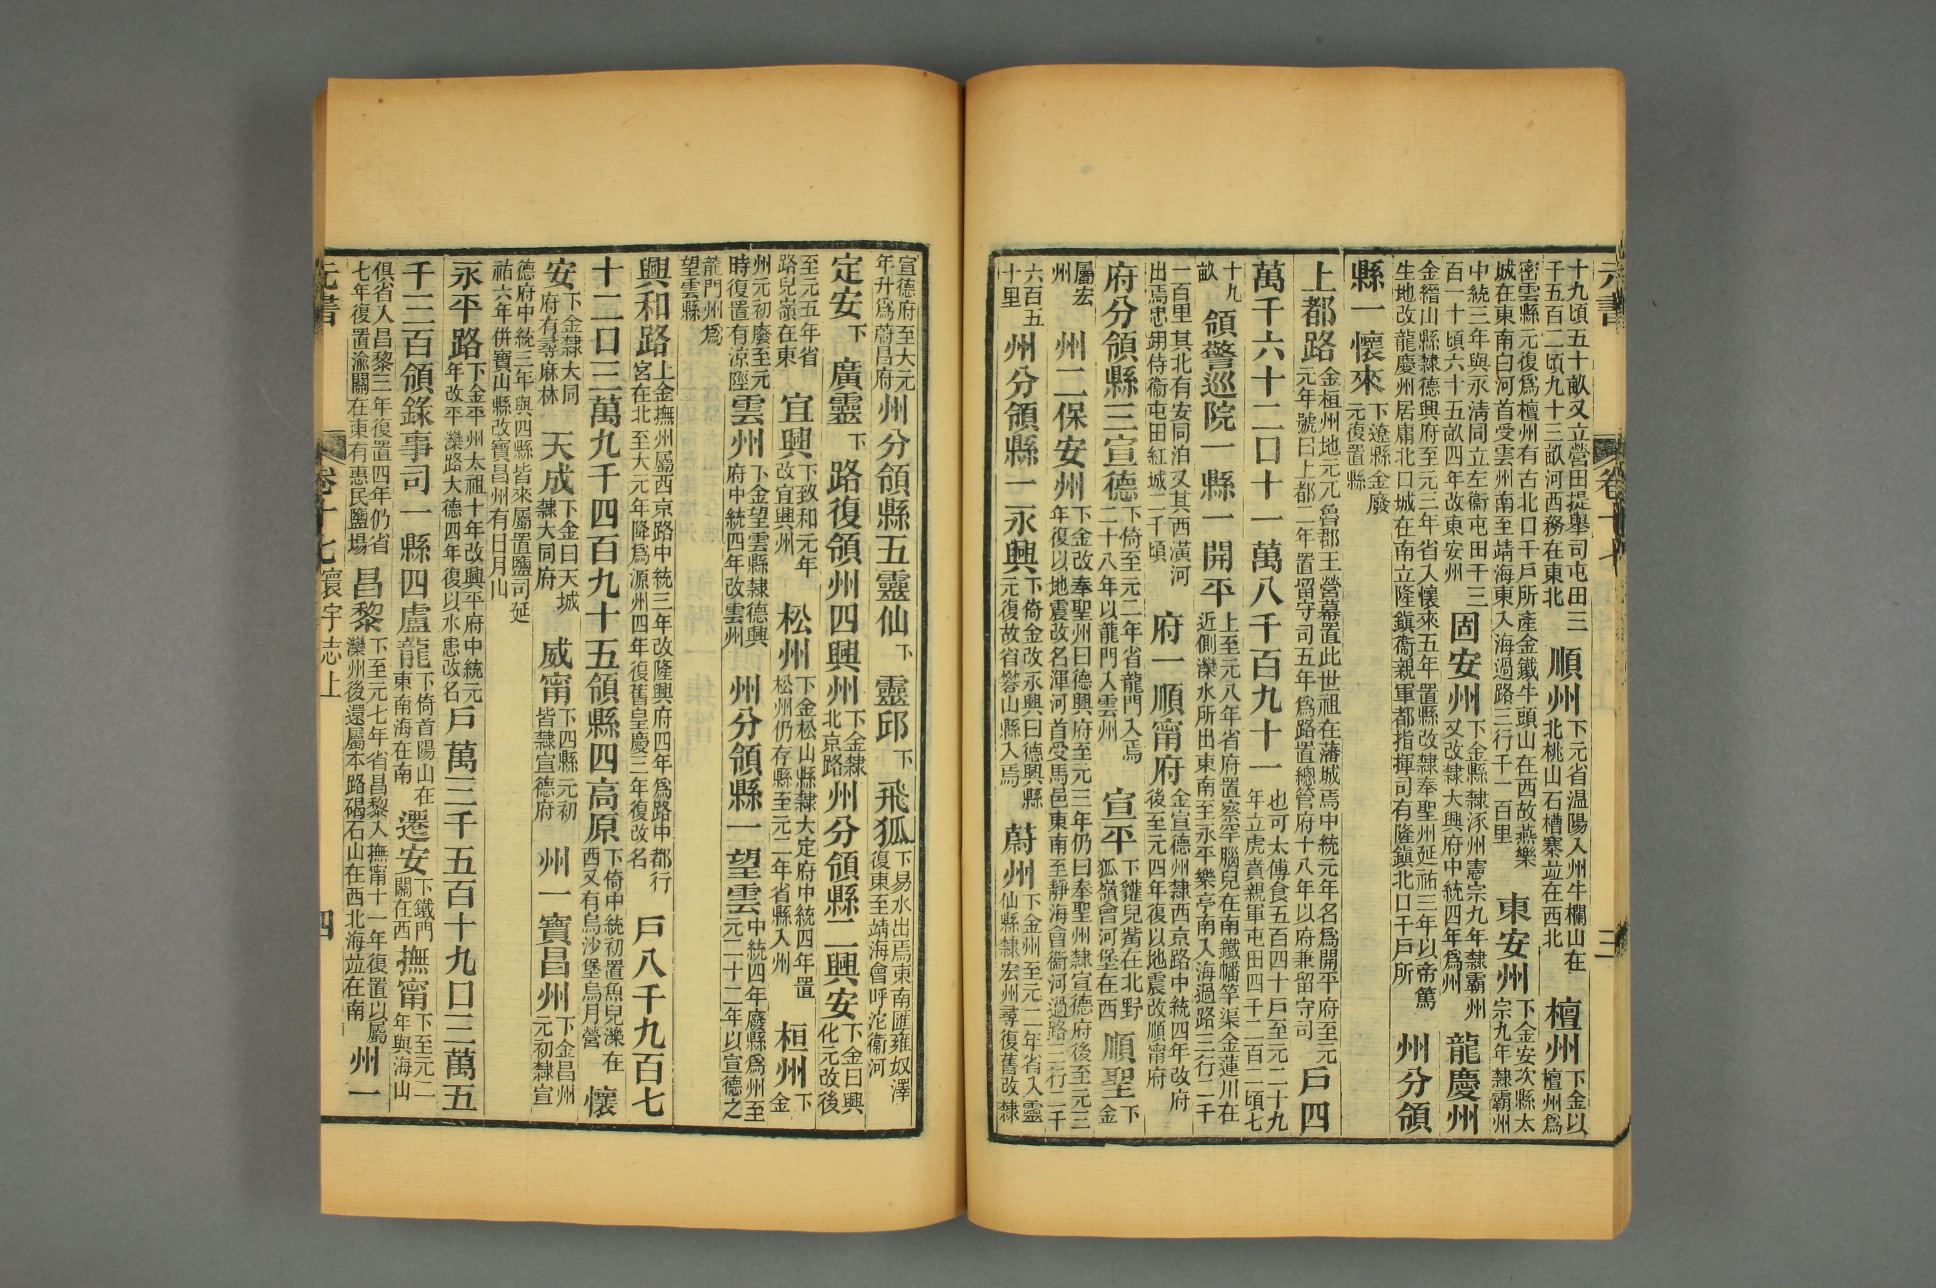 元書 卷十七 三
十九頃五十畝又立營田提舉司屯田三千五百二頃九十三畝河西務在東北 順州 下元省溫陽入州牛欄山在北桃山石槽寨竝在西北 檀州 下金以檀州爲
密雲縣元復爲檀州有古北口千戶所產金鐵牛頭山在西故燕樂城在東南白河首受雲州南至靖海東入海過路三行千一百里 東安州 下金安次縣太宗九年隸霸州
中統三年與永清同立左衞屯田千三百一十頃六十五畝四年改東安州 固安州 下金縣隸涿州憲宗九年隸霸州又改隸大興府中統四年爲州 龍慶州
金縉山縣隸德興府至元三年省入懷來五年置縣改隸奉聖州延祐三年以帝篤生地改龍慶州居庸北口城在南立隆鎮衞親軍都指揮司有隆鎮北口千戶所 州分領
縣一懷來 下遼縣金廢元復置縣
上都路 金桓州地元兀魯郡王營幕置此世祖在藩城焉中統元年名爲開平府至元元年號曰上都二年置留守司五年爲路置總管府十八年以府兼留守司 戶四
萬千六十二口十一萬八千百九十一 也可太傅食五百四十戶至元二十九年立虎賁親軍屯田四千二百二頃七
十九畝 領警巡院一縣一開平 上至元八年省府置察罕腦兒在南鐵幡竿渠金蓮川在近側灤水所出東南至永平樂亭南入海過路三行二千
一百里其北有安同泊又其西潢河出焉忠翊侍衞屯田紅城二千頃 府一順甯府 金宣德州隸西京路中統四年改府後至元四年復以地震改順甯府
府分領縣三宣德 下倚至元二年省龍門入焉二十八年以龍門入雲州 宣平 下雞兒觜在北野狐嶺會河堡在西 順聖 下金
屬宏州 州二保安州 下金改奉聖州曰德興府至元三年仍曰奉聖州隸宣德府後至元三年復以地震改名渾河首受馬邑東南至靜海會衞河過路三行二千
六百五十里 州分領縣一永興 下倚金改永興曰德興縣元復故省礬山縣入焉 蔚州 下金州至元二年省入靈仙縣隸宏州尋復舊改隸
宣德府至大元年升爲蔚昌府 州分領縣五靈仙 下 靈邱 下 飛狐 下易水出焉東南匯雍奴澤復東至靖海會呼沱衞河
定安 下 廣靈 下 路復領州四興州 下金隸北京路 州分領縣二興安 下金曰興化元改後
至元五年省路兒嶺在東 宜興 下致和元年改宜興州 松州 下金松山縣隸大定府中統四年置松州仍存縣至元二年省縣入州 桓州 下金
州元初廢至元時復置有涼陘 雲州 下金望雲縣隸德興府中統四年改雲州 州分領縣一望雲 中統四年廢縣爲州至元二十二年以宣德之
龍門州爲望雲縣
興和路 上金撫州屬西京路中統三年改隆興府四年爲路中都行宮在北至大元年降爲源州四年復舊皇慶三年復改名 戶八千九百七
十二口三萬九千四百九十五領縣四高原 下倚中統初置魚兒濼在西又有烏沙堡烏月營 懷
安 下金隸大同府有尋麻林 天成 下金曰天城隸大同府 威甯 下四縣元初皆隸宣德府 州一寶昌州 下金昌州元初隸宣
德府中統三年與四縣皆來屬置鹽司延祐六年併寶山縣改寶昌州有日月山
永平路 下金平州太祖十年改興平府中統元年改平灤路大德四年復以水患改名 戶萬三千五百十九口三萬五
千三百領錄事司一縣四盧龍 下倚首陽山在東南海在南 遷安 下鐵門關在西 撫甯 下至元二年與海山
俱省入昌黎三年復置四年仍省七年復置渝關在東有惠民鹽場 昌黎 下至元七年省昌黎入撫甯十一年復置以屬灤州後還屬本路碣石山在西北海竝在南 州一
元書 卷十七 寰宇志上 四